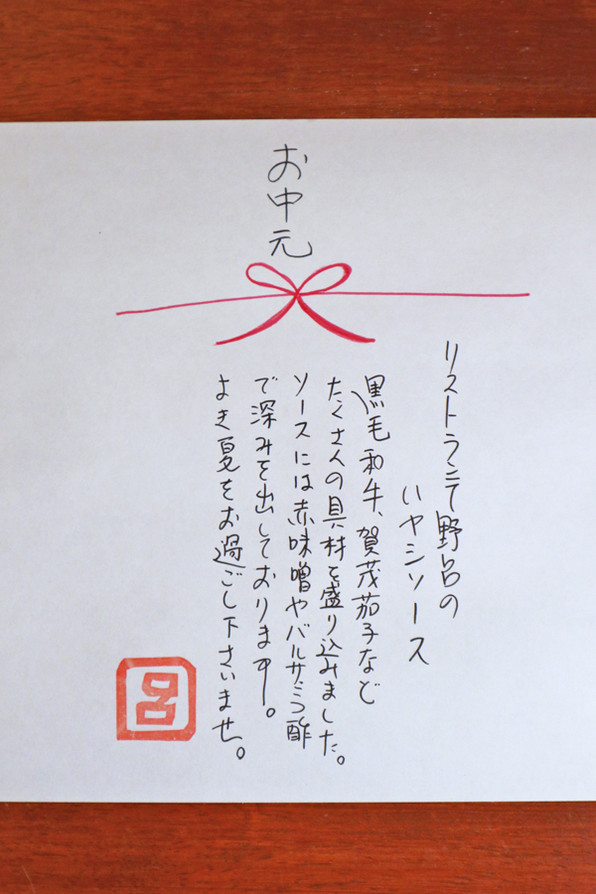 お中元
リストランテ野呂の
ハヤシソース
黒毛和牛、賀茂茄子など
たくさんの具材を盛り込みました。
ソースには赤味噌やバルサミコ酢
で深みを出しております。
よき夏をお過ごし下さいませ。
呂